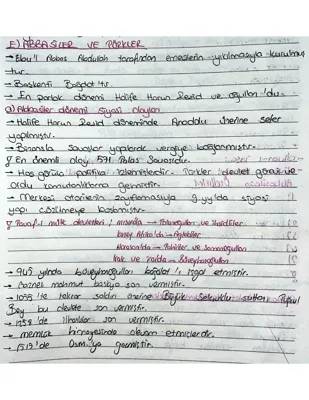 E) ABBASİLER VE TÜRKLER
→ Ebu'l Abbas Abdullah tarafından emevilerin yıkılmasıyla kurulmuş
tur.
→ Başkenti Bağdat'tır.
→ En parlak dönemi Halife Harun Reşid ve oğulları 'dır.
a) Abbasiler dönemi siyasi olayları
→ Halife Harun Reşid döneminde Anadolu üzerine sefer
yapılmıştı.
→ Bizansla savaşlar yapılarak vergiye bağlanmıştır.
En önemli olay 571 Talas Savaşıdır.
→ Hoş görülü politika izlemişlerdir. Türkler devlet görevi ve
ordu komutanlıklarına gelmiştir.
→ Merkezi otoritenin zayıflamasıyla 9.yy'da siyasi
yapı çözülmeye başlamıştır.
Tavaif-i mülk devletleri: Mısırda → Tolunoğulları ve İhşidiler
Kuzey Afrika'da → Aglebiler
Horasan'da → Tahiriler ve Samanoğulları
Irak ve İran'da → Büveyhoğulları
→ 945 yılında büveyhoğulları bağdat'ı işgal etmiştir.
→ Gazneli mahmut baskıya son vermiştir.
→ 1055 'te tekrar saldırı üzerine Büyük Selçuklu sultanı Tuğrul
Bey bu devlete son vermiştir.
→ 1258 'de İlhanlılar son vermiştir.
→ memlük himayesinde devam etmişlerdir.
→ 1517'de Osm.'ya geçmiştir.